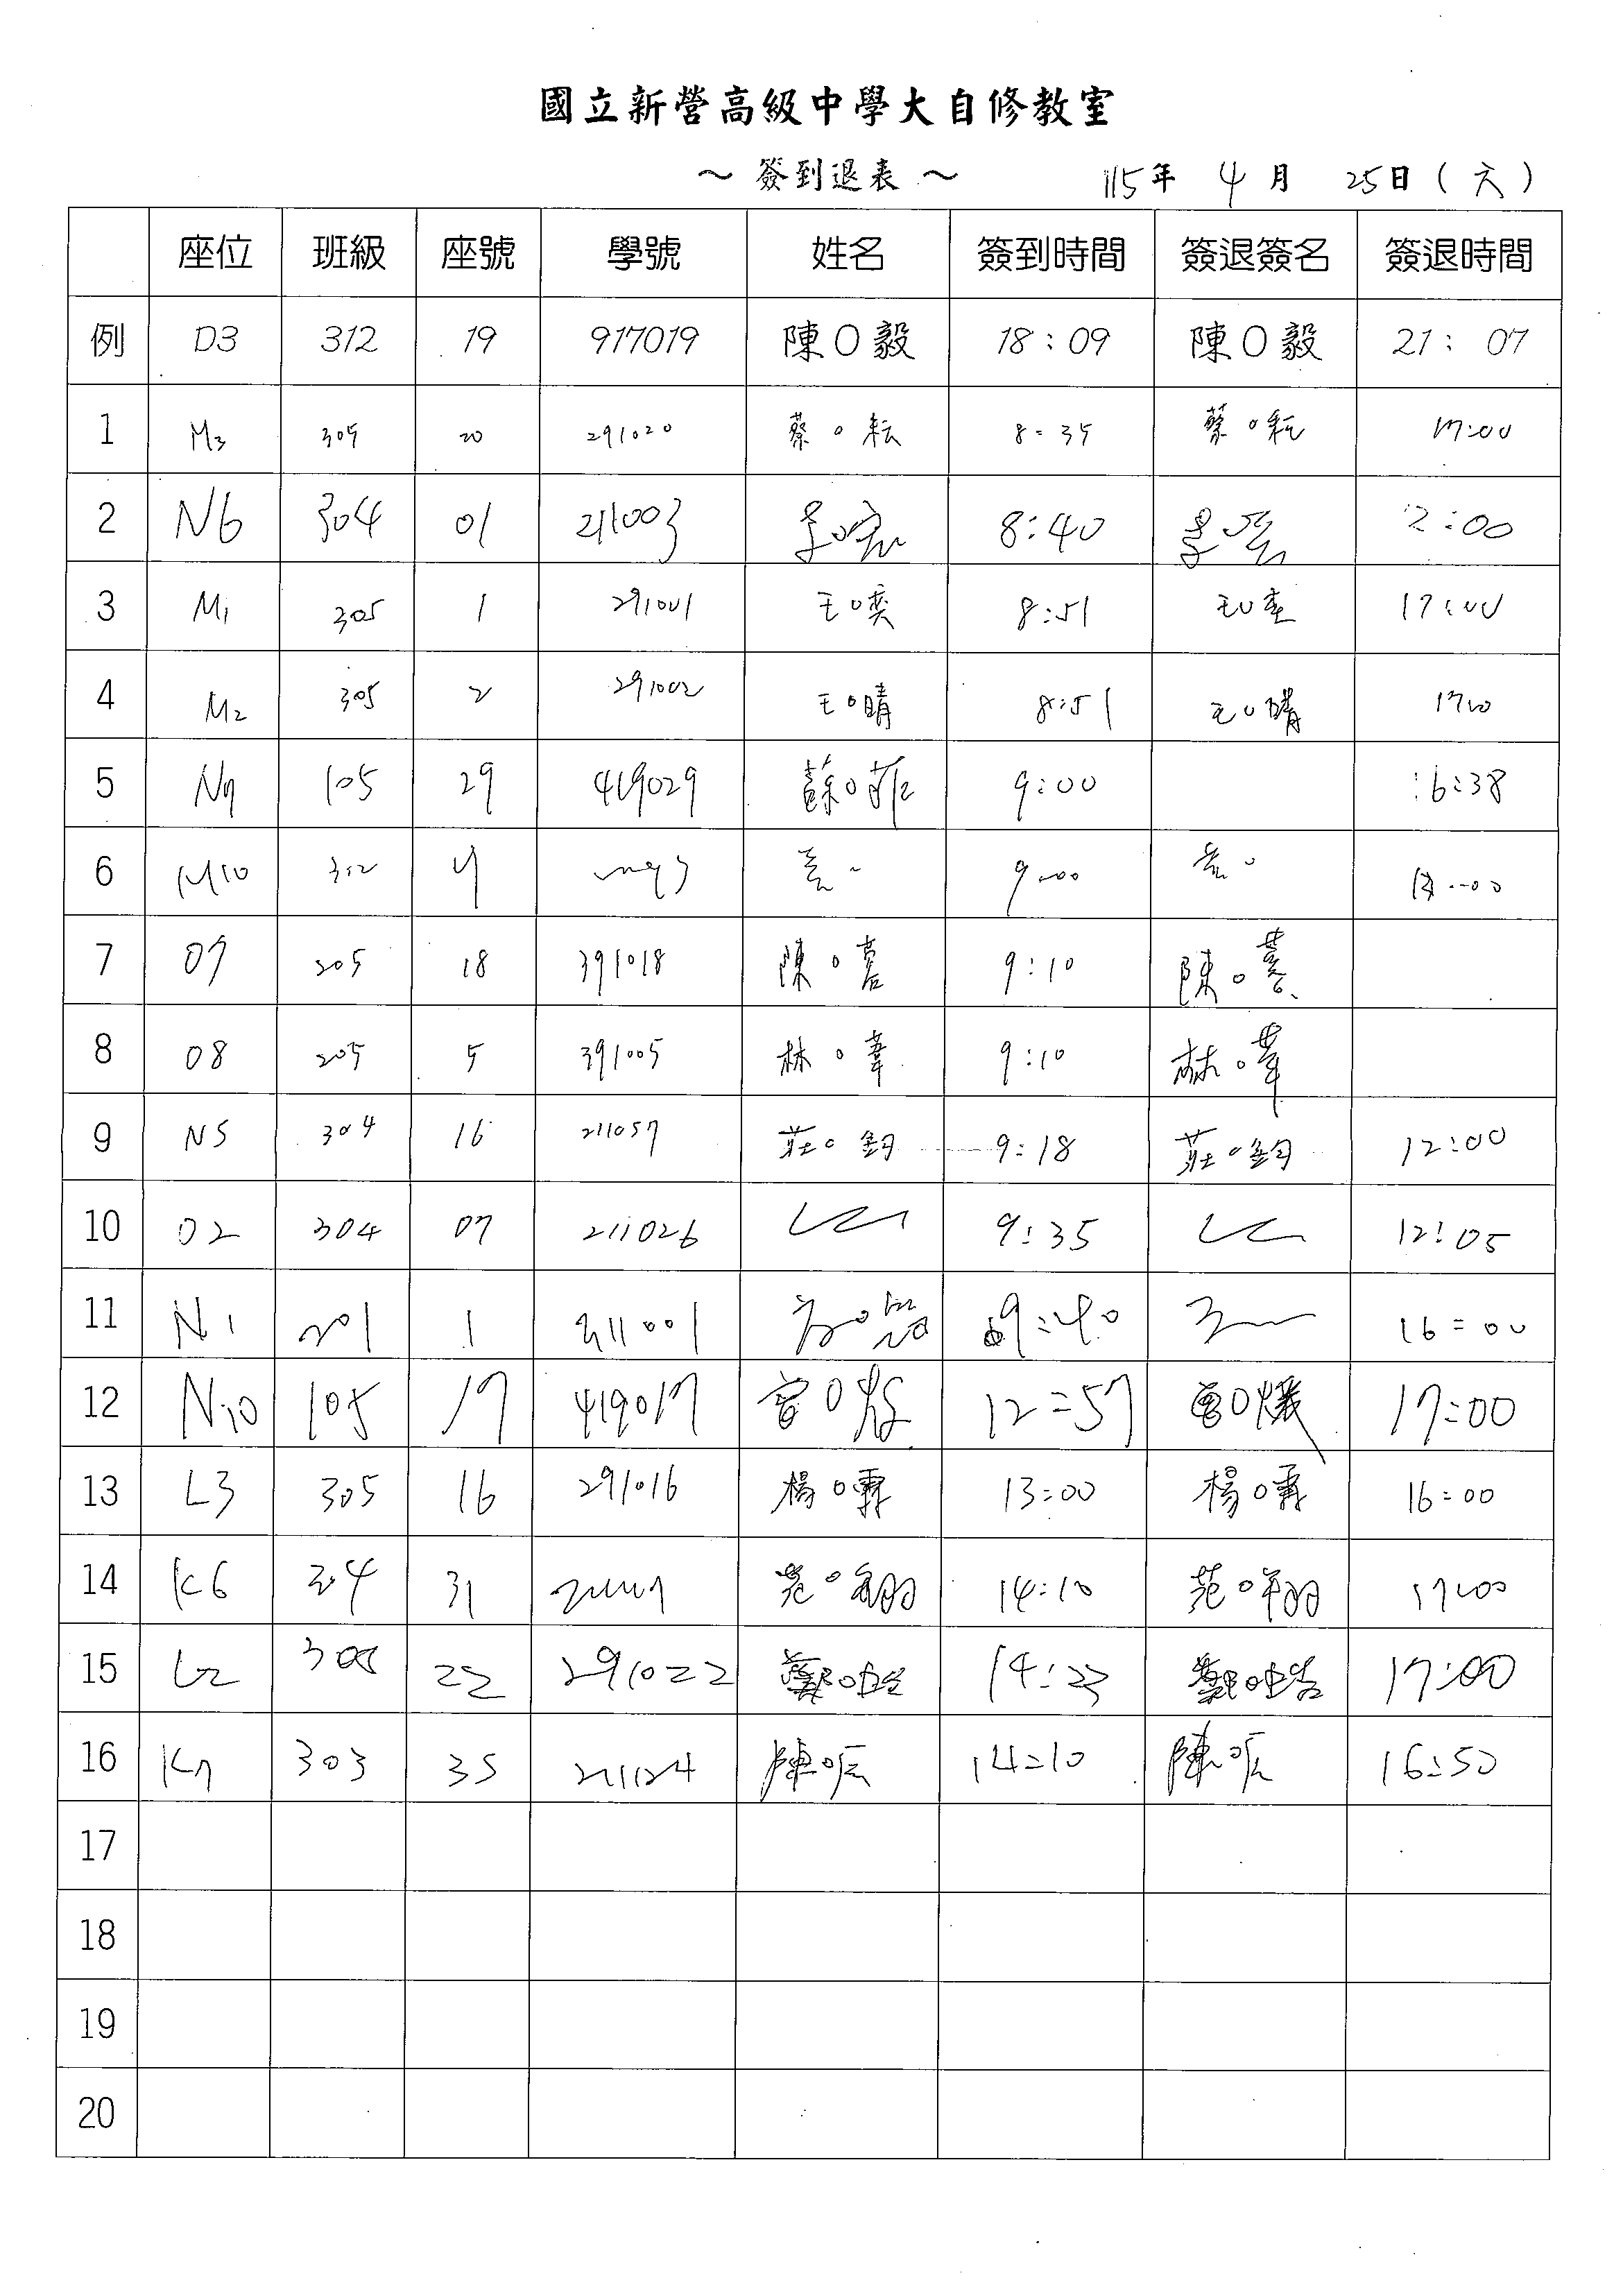 國立新營高級中學大自修教室
～簽到退表～ 115年 4月 25日(六)
座位 班級 座號 學號 姓名 簽到時間 簽退簽名 簽退時間
例 D3 312 19 917019 陳O毅 18:09 陳O毅 21:07
1 M3 305 20 291020 蔡O耘 8:35 蔡O耘 17:00
2 N6 304 01 211003 8:40 12:00
3 M1 305 1 291001 王O奕 8:51 王O奕 17:00
4 M2 305 2 291002 王O晴 8:51 王O晴 1700
5 N9 105 29 419029 蘇O菲 9:00 16:38
6 M10 312 9:00
7 07 205 18 391018 陳O 9:10 陳O
8 08 205 5 391005 林O葦 9:10 林O葦
9 N5 304 16 211057 莊O鈞 9:18 莊O鈞 12:00
10 02 304 07 211026 9:35 12:05
11 N1 201 1 311001 9:40 16:00
12 N10 105 17 419017 12:57 17:00
13 L3 305 16 291016 楊O霏 13:00 楊O霏 16:00
14 K6 304 31 范O翔 14:10 范O翔 17:00
15 L2 305 22 291022 鄭O 14:23 鄭O 17:00
16 K7 303 35 211124 陳O 14:10 陳O 16:50
17
18
19
20